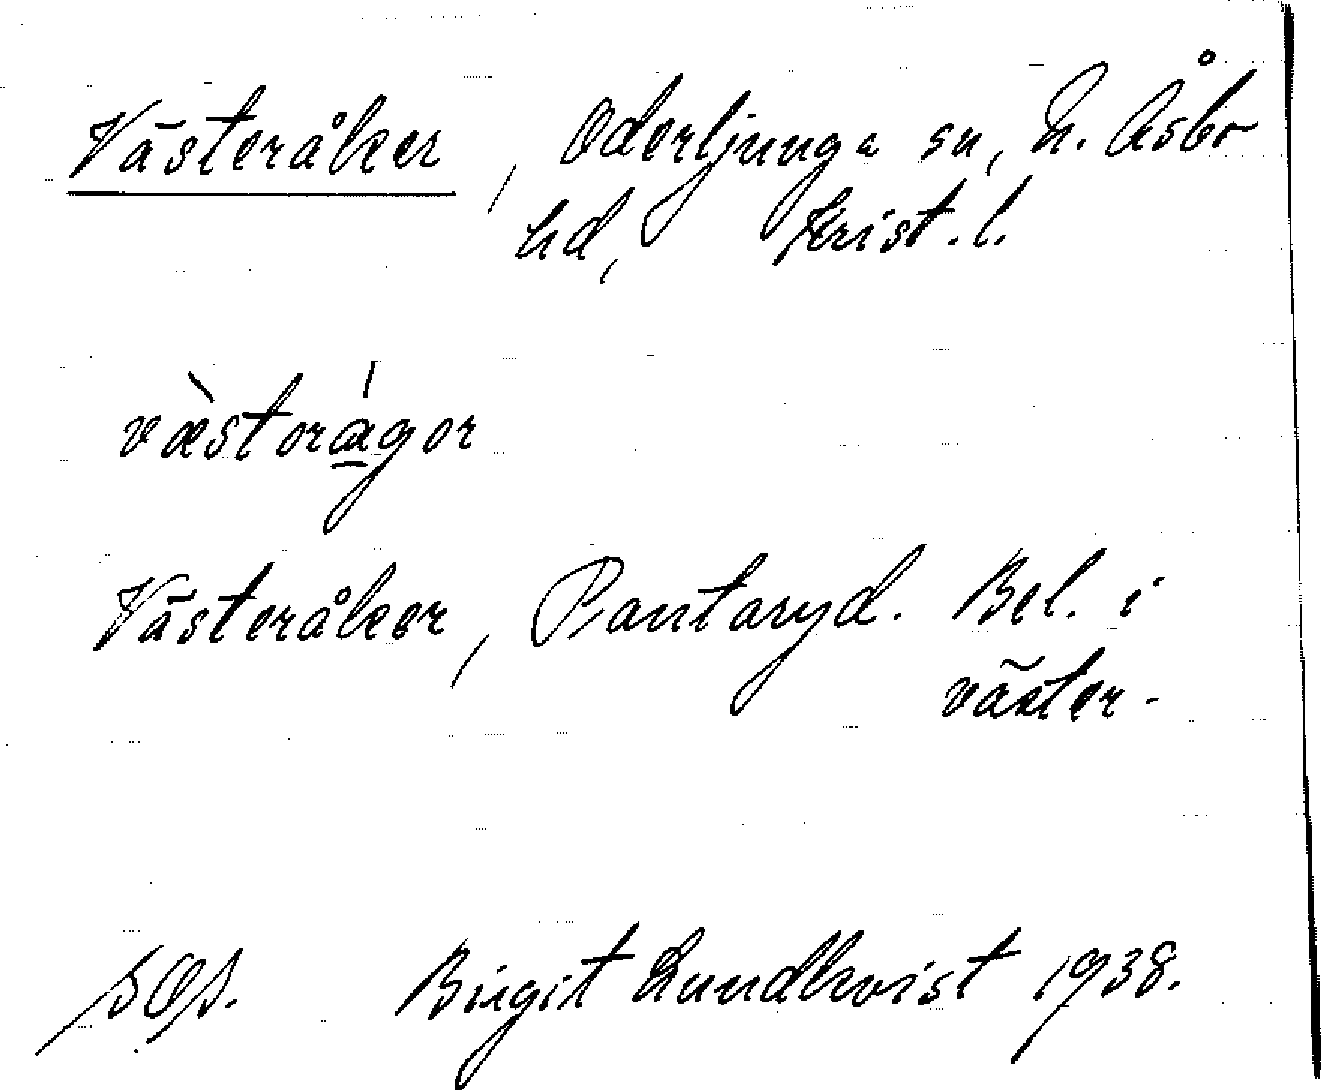 Västeråker, Oderljunga sn, N. Åsbo
hd, Krist. l.
væ̀storágor
Västeråker, Pantaryd. Bel. i
väster.
Birgit Lundkvist 1938.